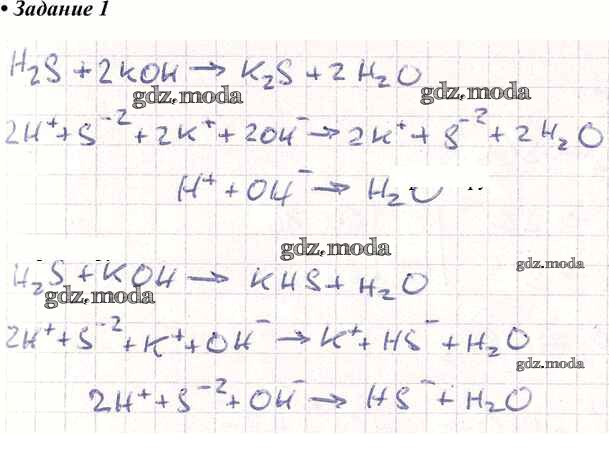 • Задание 1
H₂S + 2KOH → K₂S + 2H₂O
gdz.moda gdz.moda
2H⁺ + S⁻² + 2K⁺ + 2OH⁻ → 2K⁺ + S⁻² + 2H₂O
H⁺ + OH⁻ → H₂O
gdz.moda
gdz.moda
H₂S + KOH → KHS + H₂O
gdz.moda
2H⁺ + S⁻² + K⁺ + OH⁻ → K⁺ + HS⁻ + H₂O
gdz.moda
2H⁺ + S⁻² + OH⁻ → HS⁻ + H₂O